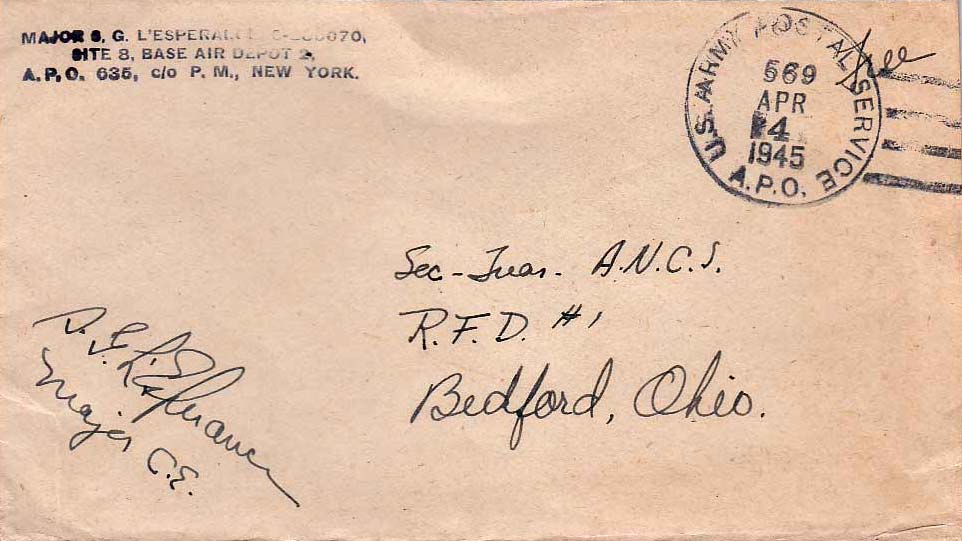 MAJOR S. G. L'ESPERANCE
SITE 8, BASE AIR DEPOT 2,
A.P.O. 635, c/o P. M., NEW YORK.
Free
U.S. ARMY POSTAL SERVICE
569
APR
4
1945
A.P.O.
Sec-Treas. A.N.C.S.
R.F.D. #1
Bedford, Ohio.
S. G. L'Esperance
Major C.E.